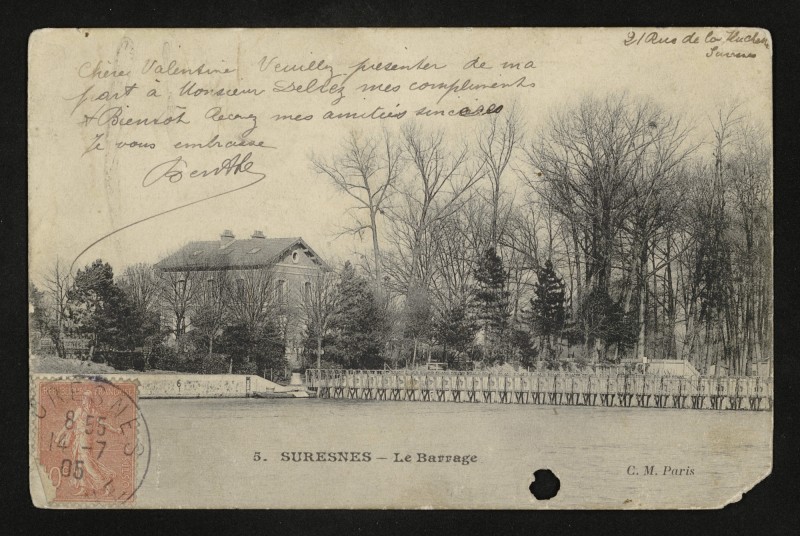 21 Rue de la Huchette
Suresnes
Chère Valentine Veuillez présenter de ma
part à Monsieur Deltez mes compliments
& Bientôt Recevez mes amitiés sincères
Je vous embrasse
Berthe
SURESNES
8 55
14 -7
05
5. SURESNES – Le Barrage
C. M. Paris